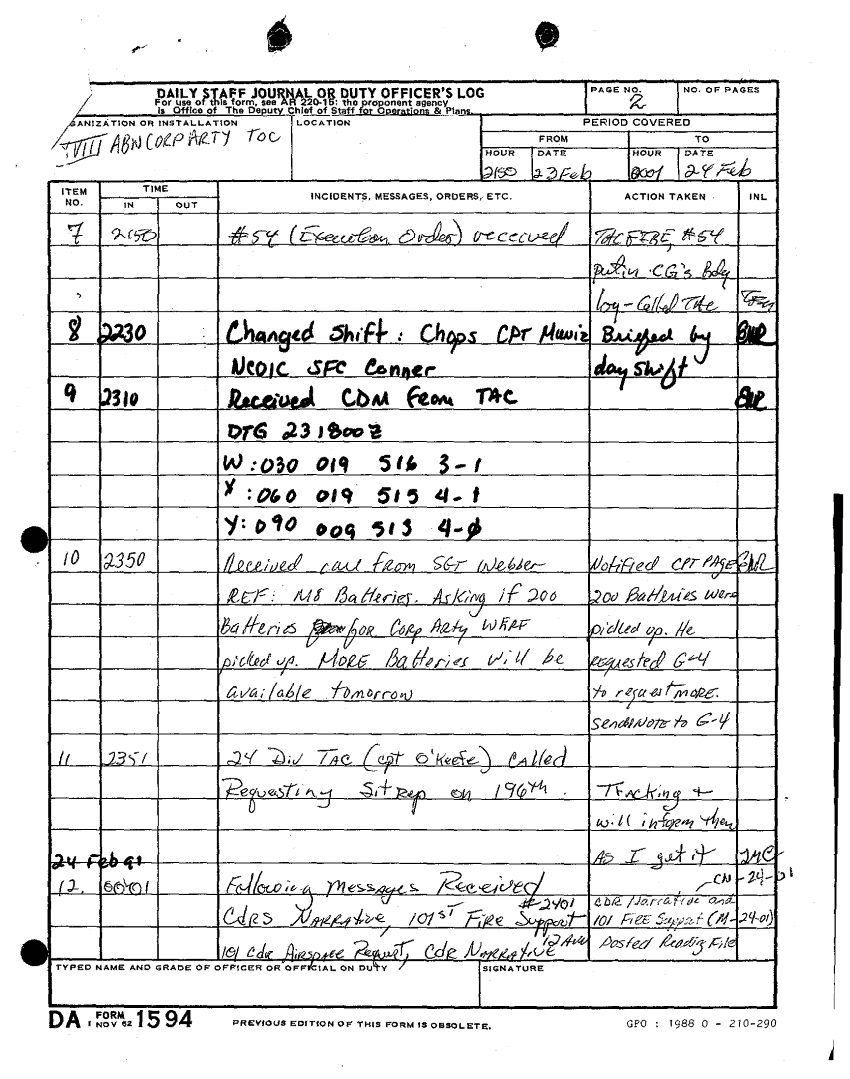 DAILY STAFF JOURNAL OR DUTY OFFICER'S LOG
For use of this form, see AR 220-15; the proponent agency
is Office of The Deputy Chief of Staff for Operations & Plans.
PAGE NO.
2
NO. OF PAGES
GANIZATION OR INSTALLATION
XVIII ABN CORP ARTY TOC
LOCATION
PERIOD COVERED
FROM
TO
HOUR
DATE
HOUR
DATE
2150
23 Feb
0001
24 Feb
ITEM NO.
TIME
IN
OUT
INCIDENTS, MESSAGES, ORDERS, ETC.
ACTION TAKEN
INL
7 2150 #54 (Execution Order) received TACFIRE, #54
put in CG's Bdg
log - Called TAC
8 2230 Changed Shift: Chops CPT Muniz Briefed by EWR
NCOIC SFC Conner day shift
9 2310 Received CDM From TAC EWR
DTG 231800Z
W: 030 019 516 3-1
X: 060 019 515 4-1
Y: 090 009 513 4-0
10 2350 Received call From SGT Webber Notified CPT PAGE EWR
REF: M8 Batteries. Asking if 200 200 Batteries were
Batteries for Corp Arty WERE picked up. He
picked up. MORE Batteries will be requested G-4
available tomorrow to request MORE.
Send NOTE to G-4
11 2351 24 Div TAC (cpt O'Keefe) CAlled
Requesting Sitrep on 196th. Tracking +
will inform them
24 Feb 91 As I get it JMC
12. 0001 Following Messages Received CN-24-01
#2401 CDR Narrative and
Cdrs NARRATIVE, 101ST FIRE Support 101 FIRE Support (M-24-01)
12 Avn Posted Reading File
101 Cdr Airspace Request, Cdr NARRATIVE
TYPED NAME AND GRADE OF OFFICER OR OFFICIAL ON DUTY
SIGNATURE
DA FORM 1 NOV 62 1594
PREVIOUS EDITION OF THIS FORM IS OBSOLETE.
GPO : 1988 O - 210-290